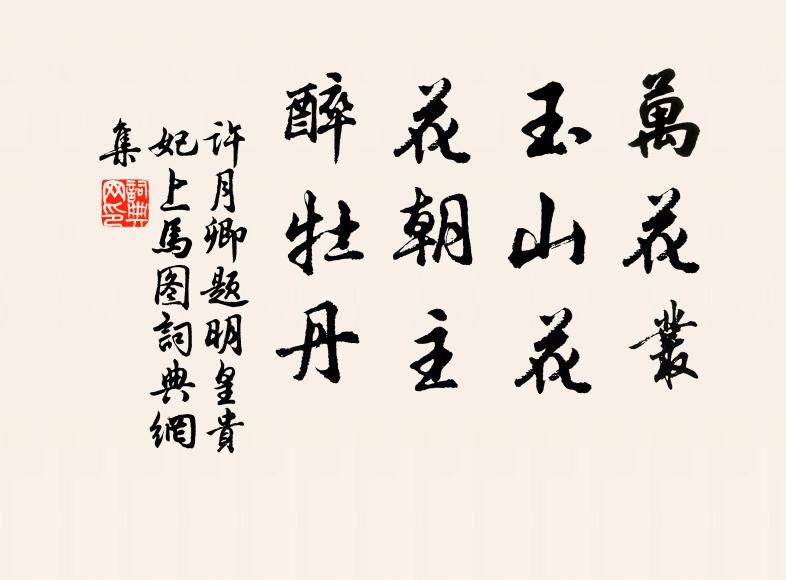 萬花叢
玉山花
花朝主
醉牡丹
許月卿題明皇貴
妃上馬图詞典網
集
詞典
网印